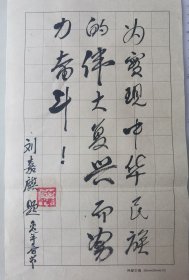 为實现中华民族
的伟大复兴而努
力奋斗！
刘嘉麒 题